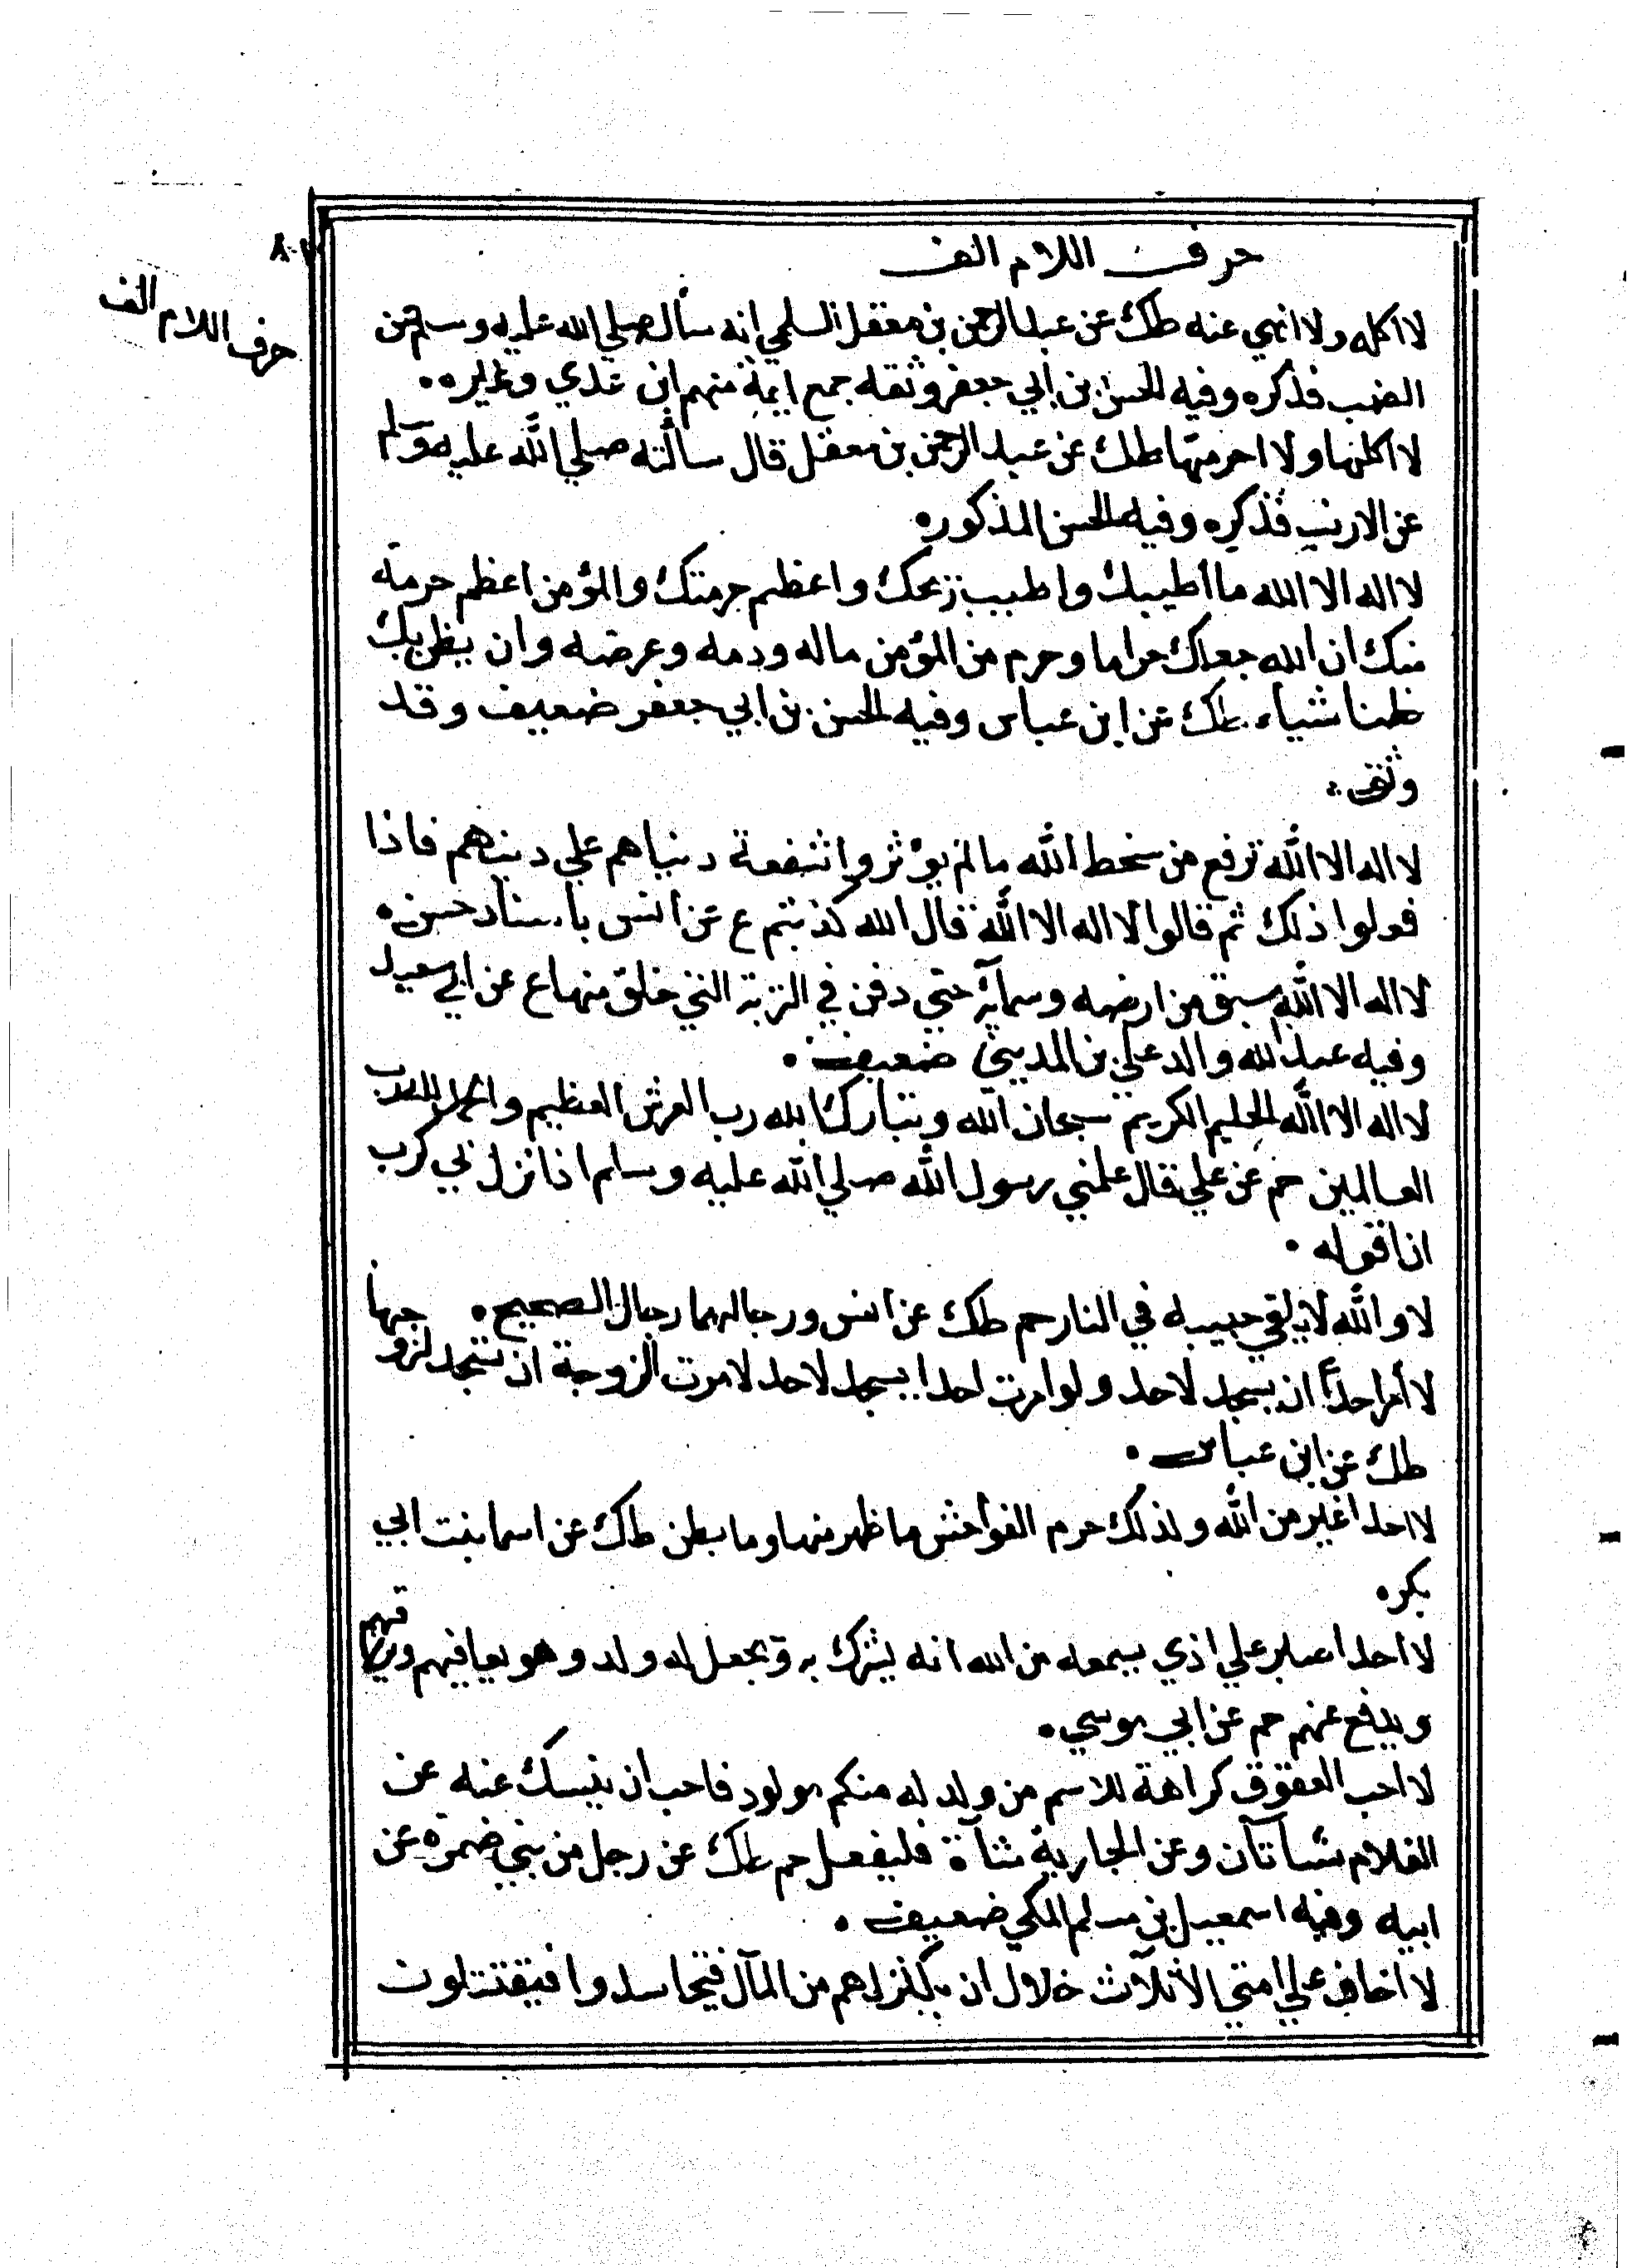 حرف اللام الف
١٠٨
حرف اللام الف
لا اكله ولا انهي عنه طك عن عبد الرحمن بن معقل السلمي انه سأل صلي الله عليه وسلم عن
الضب فذكره وفيه الحسن بن ابي جعفر وثقه جمع ايمة منهم ابن عدي وغيره
لا اكلها ولا احرمتها طك عن عبد الرحمن بن معقل قال سالته صلي الله عليه وسلم
عن الارنب فذكره وفيه الحسن المذكور
لا اله الا الله ما اطيبك واطيب ريحك واعظم حرمتك والمؤمن اعظم حرمة
منك ان الله جعلك حراما وحرم من المؤمن ماله ودمه وعرضه وان يظن بك
ظنا شياء طك عن ابن عباس وفيه الحسن بن ابي جعفر ضعيف وقد
وثق
لا اله الا الله ترفع من سخط الله ما لم يؤثروا دنياهم علي دينهم فاذا
فعلوا ذلك ثم قالوا لا اله الا الله قال الله كذبتم ع عن انس باسناد حسن
لا اله الا الله سبق من ارضه وسمآئه حتي دفن في التربة التي خلق منها ع عن ابي سعيد
وفيه عبد الله والد علي بن المديني ضعيف
لا اله الا الله الحليم الكريم سبحان الله وتبارك الله رب العرش العظيم والحمد لله رب
العالمين حم عن علي قال علمني رسول الله صلي الله عليه وسلم اذا نزل بي كرب
ان اقوله
لا والله لا يلقي حبيبه في النار حم طك عن انس ورجالهما رجال الصحيح
لا أمر احدا ان يسجد لاحد ولو امرت احدا يسجد لاحد لامرت الزوجة ان تسجد لزوجها
طك عن ابن عباس
لا احد اغير من الله ولذلك حرم الفواحش ما ظهر منها وما بطن طك عن اسما بنت ابي
بكر
لا احد اصبر علي اذي يسمعه من الله انه يشرك به ويجعل له ولد وهو يعافيهم ويرزقهم
ويدفع عنهم حم عن ابي موسي
لا احب العقوق كراهة للاسم من ولد له منكم مولود فاحب ان ينسك عنه عن
الغلام شاتان وعن الجارية شاة فليفعل حم طك عن رجل من بني ضمرة عن
ابيه وفيه اسمعيل بن مسلم المكي ضعيف
لا اخاف علي امتي الا ثلاث خلال ان يكثر لهم من المال فيتحاسدوا فيقتتلون